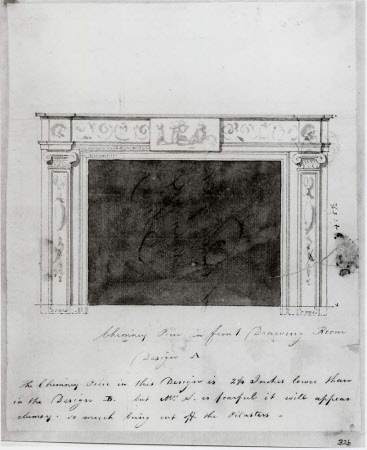 Chimney Piece in front Drawing Room
Design A
The Chimney Piece in this Design is 2¼ Inches lower than
in the Design B. but Mr. L. is fearful it will appear
clumsy. so much being cut off the Pilasters.
326